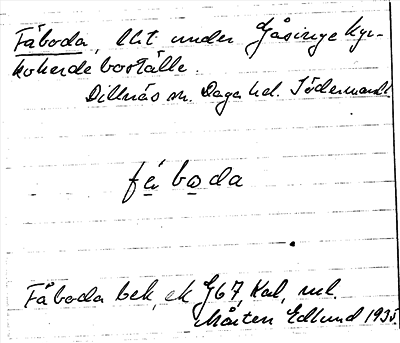 Fäboda, lht under Gåsinge kyr-
koherde boställe.
Dillnäs sn. Daga hd. Södermanl.
fé boda
Fäboda bek, ek G67, Kal, ml.
Mårten Edlund 1935.